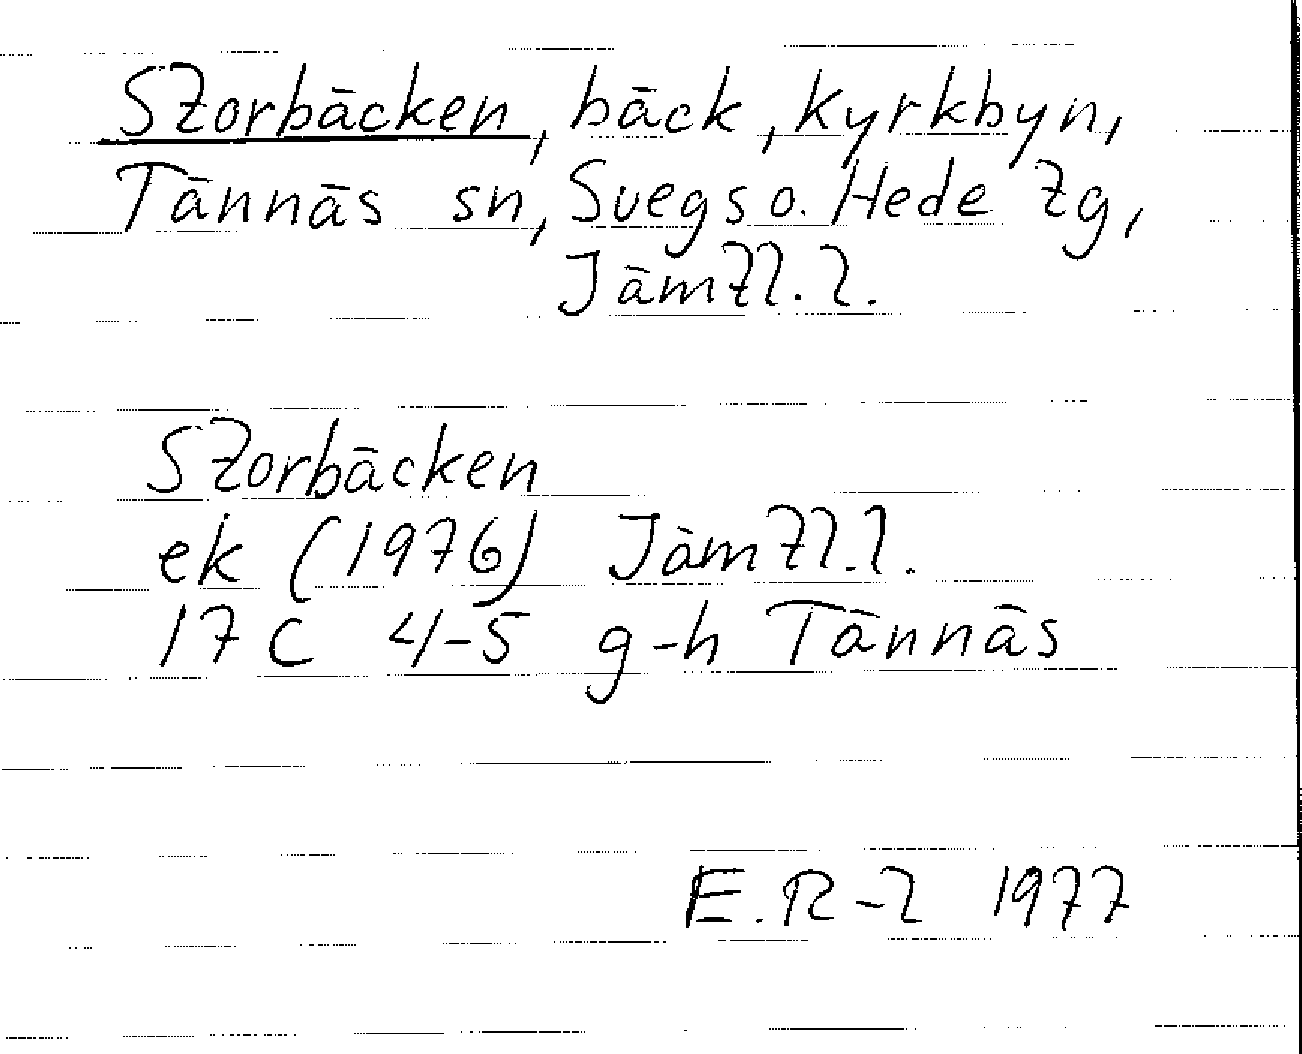 Storbäcken, bäck, Kyrkbyn,
Tännäs sn, Svegs o. Hede tg,
Jämtl. l.
Storbäcken
ek (1976) Jämtl. l.
17 C 4-5 g-h Tännäs
E. R-l 1977